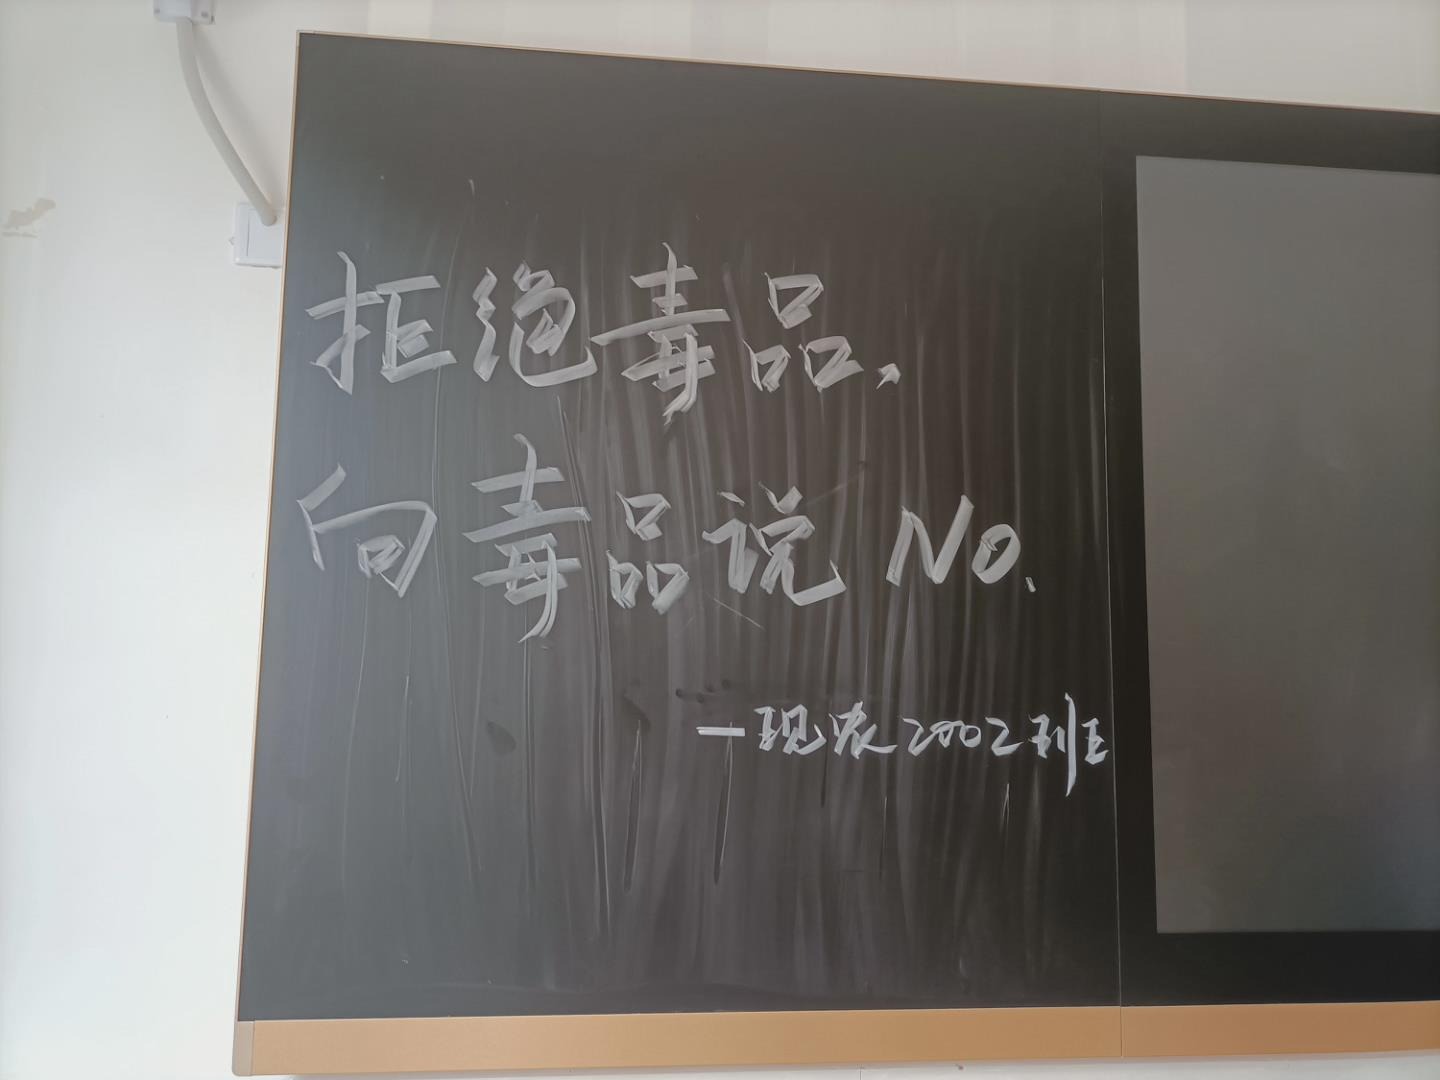 拒绝毒品,
向毒品说No.
—现农2002班